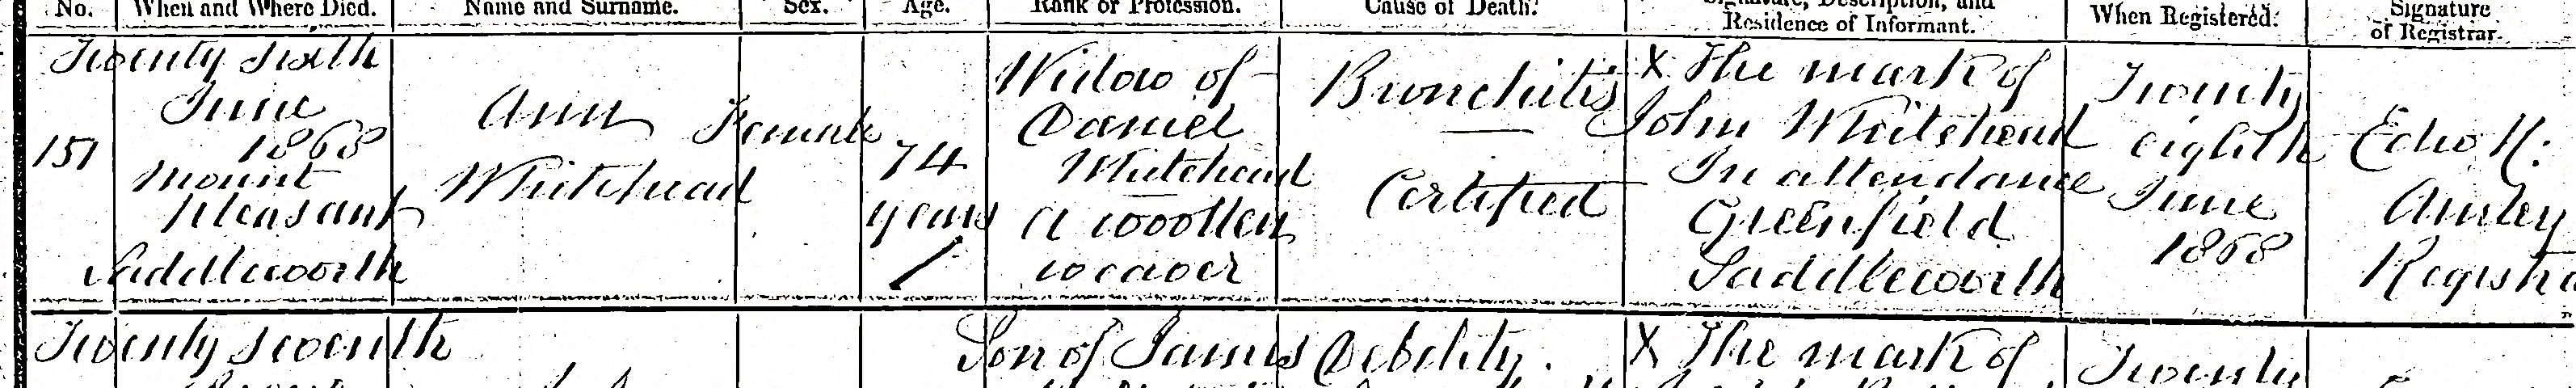 No. When and Where Died. Name and Surname. Sex. Age. Rank or Profession. Cause of Death. Signature, Description, and Residence of Informant. When Registered. Signature of Registrar.
151
Twenty sixth
June
1868
Mount
Pleasant
Saddleworth
Ann
Whitehead
Female
74
years
Widow of
Daniel
Whitehead
a woollen
weaver
Bronchitis
Certified
X The mark of
John Whitehead
In attendance
Greenfield
Saddleworth
Twenty
eighth
June
1868
Registra
Twenty seventh
Son of James
Debility.
X The mark of
Twenty